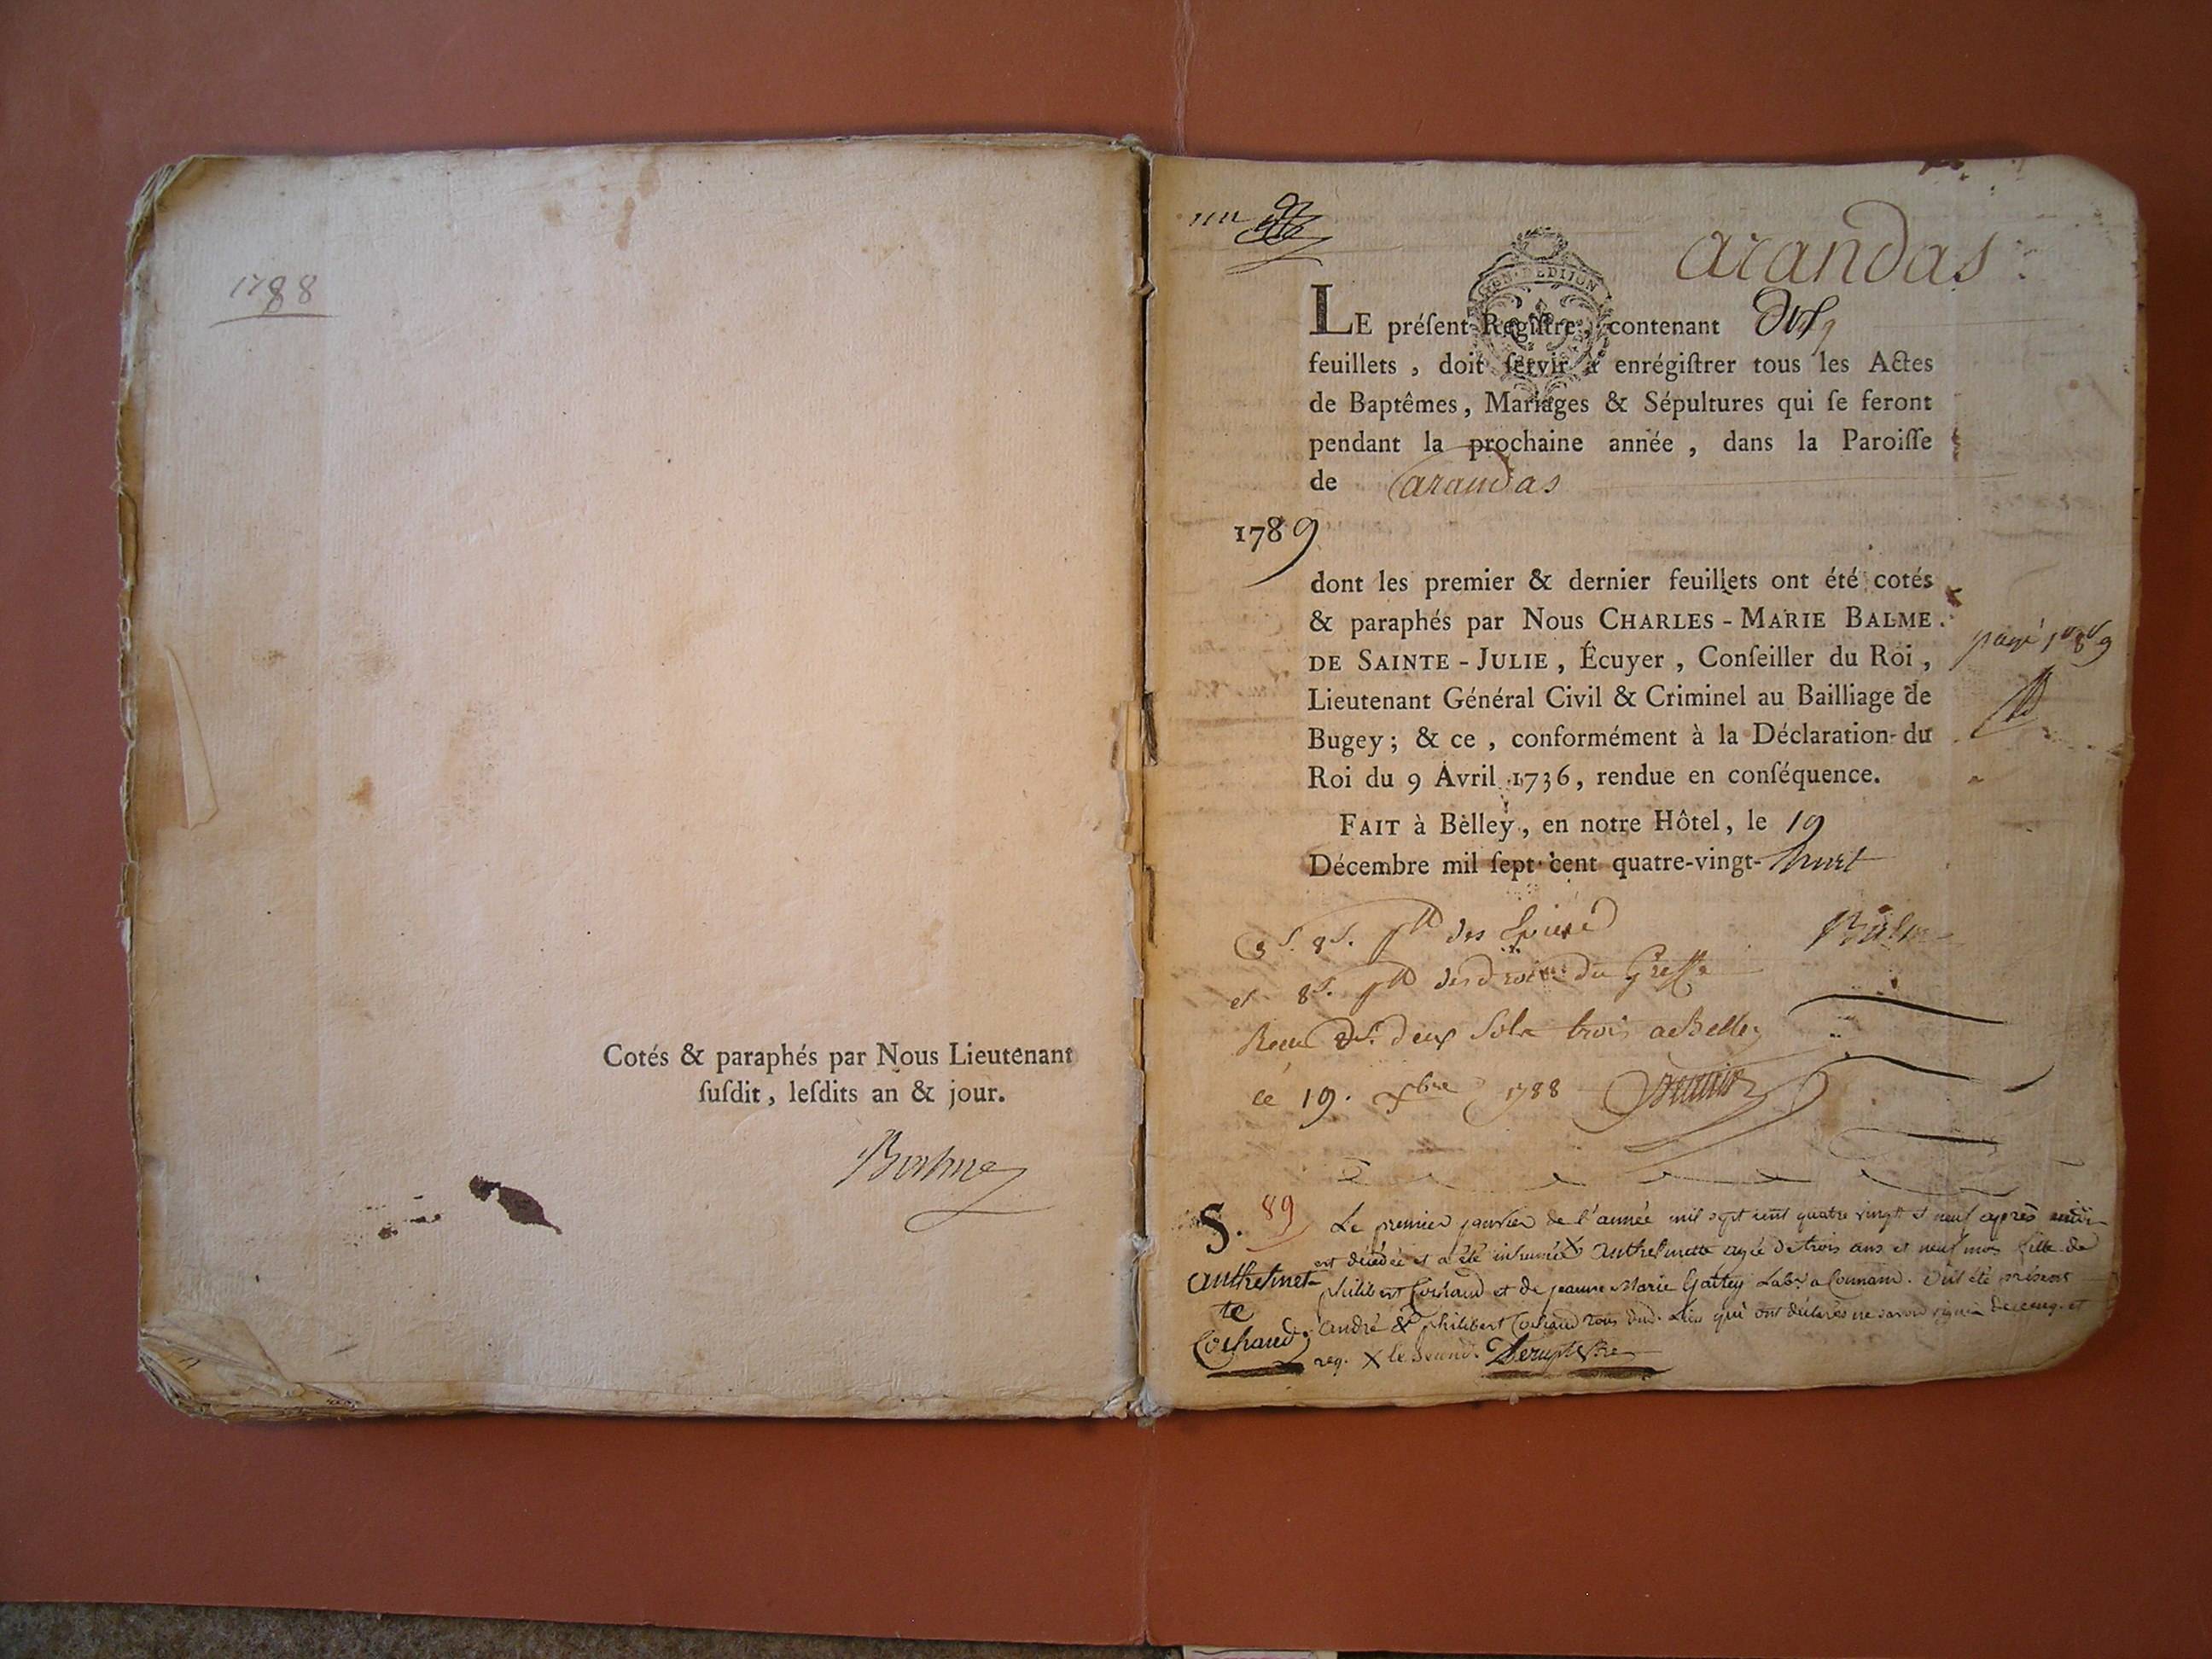 1788
Cotés & paraphés par Nous Lieutenant
ſuſdit, leſdits an & jour.
Balme
un
arandas
GEN. DE DIJON
LE préſent Regiſtre, contenant
feuillets, doit ſervir à enrégiſtrer tous les Actes
de Baptêmes, Mariages & Sépultures qui ſe feront
pendant la prochaine année, dans la Paroiſſe
de arandas
1789
dont les premier & dernier feuillets ont été cotés
& paraphés par Nous CHARLES-MARIE BALME
DE SAINTE-JULIE, Écuyer, Conſeiller du Roi,
Lieutenant Général Civil & Criminel au Bailliage de
Bugey; & ce, conformément à la Déclaration du
Roi du 9 Avril 1736, rendue en conſéquence.
FAIT à Belley, en notre Hôtel, le 19
Décembre mil ſept cent quatre-vingt-huit
Balme
et 8s. des droits du Greffe
deux sols trois a Belley
le 19. Xbre 1788
S. 89
Le premier janvier de l'année mil sept cent quatre vingt et neuf après midi
est décédée et a été inhumée X anthelmette agée de trois ans et neuf mois fille de
philibert Cochaud et de jeanne Marie Gattey Labr a Counand. ont été présens
andré & philibert Cochaud tous dud. Lieu qui ont déclarés ne savoir signer de ce enq. et
req. X le Second.
anthelmet-
te
Cochaud.